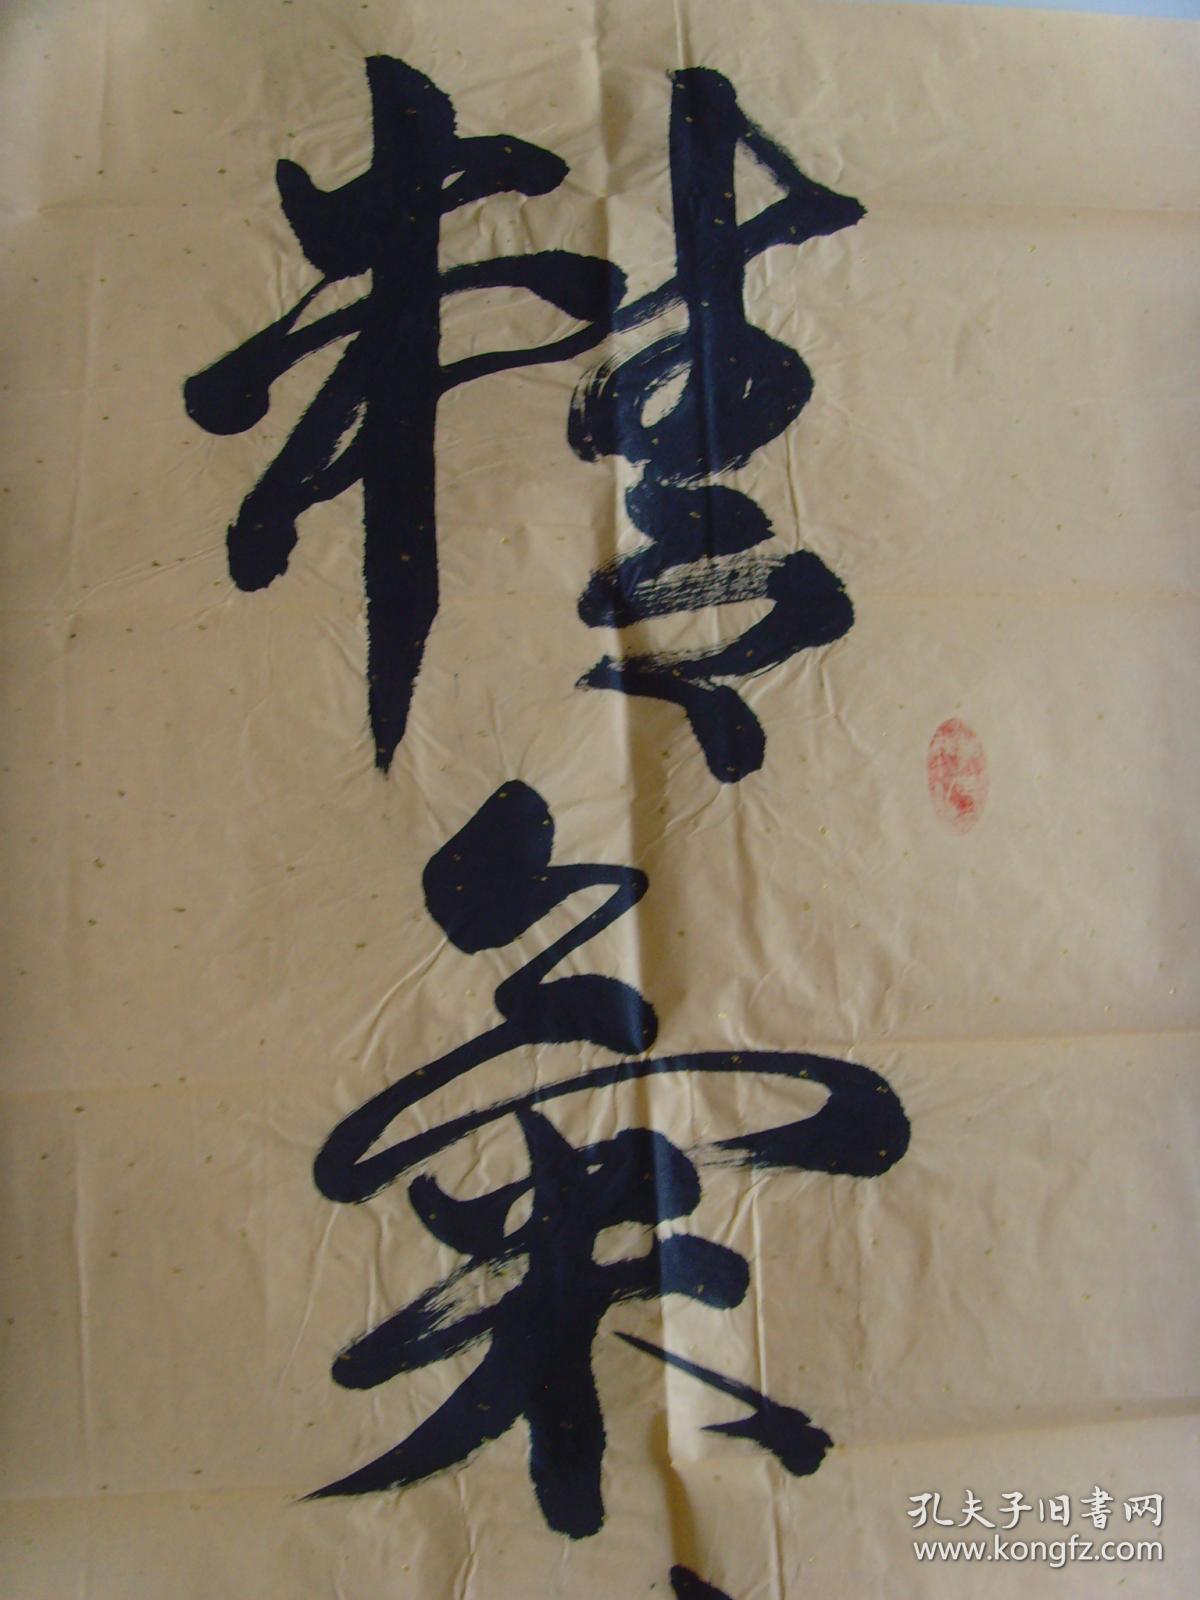 精
氣
孔夫子旧書网
www.kongfz.com